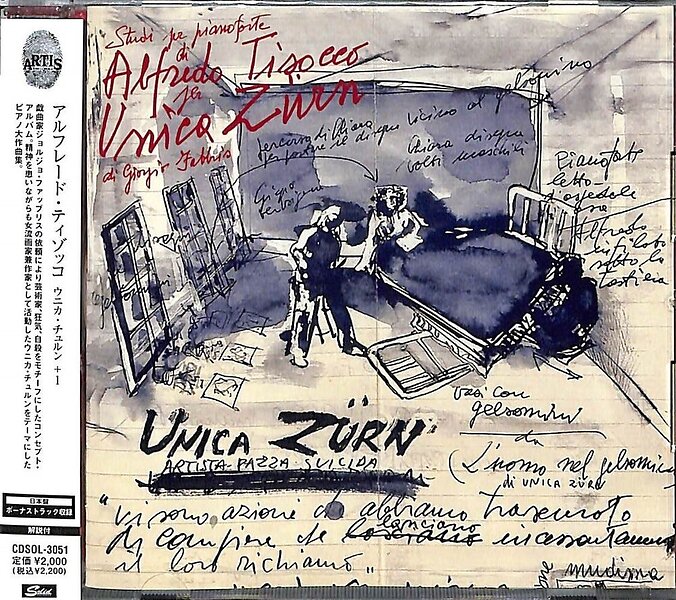 ARTIS
アルフレード・ティゾッコ ウニカ・チュルン +1
戯曲家ジョルジョ・ファッブリスの依頼により芸術家、狂気、自殺をモチーフにしたコンセプト・
アルバム。精神を患いながらも女流画家兼作家として活動したウニカ・チュルンをテーマにした
ピアノ大作曲集。
日本盤
ボーナストラック収録
解説付
CDSOL-3051
定価 ¥2,000
(税込 ¥2,200)
Solid
Studi per pianoforte
di
Alfredo Tisocco
per
Unica Zürn
di Giorgio Fabbris
percorso di Chiara
per portare il disegno vicino al gelsomino
Chiara disegna
volti maschili
Pianoforte
letto
ospedale
Alfredo
sotto la
tastiera
UNICA ZÜRN
ARTISTA PAZZA SUICIDA
vasi con
gelsomini
da
(L'uomo nel gelsomino
di UNICA ZÜRN
"vi sono azioni che abbiamo trascurato
di compiere che lasciano incessantemente
il loro richiamo"
mudima